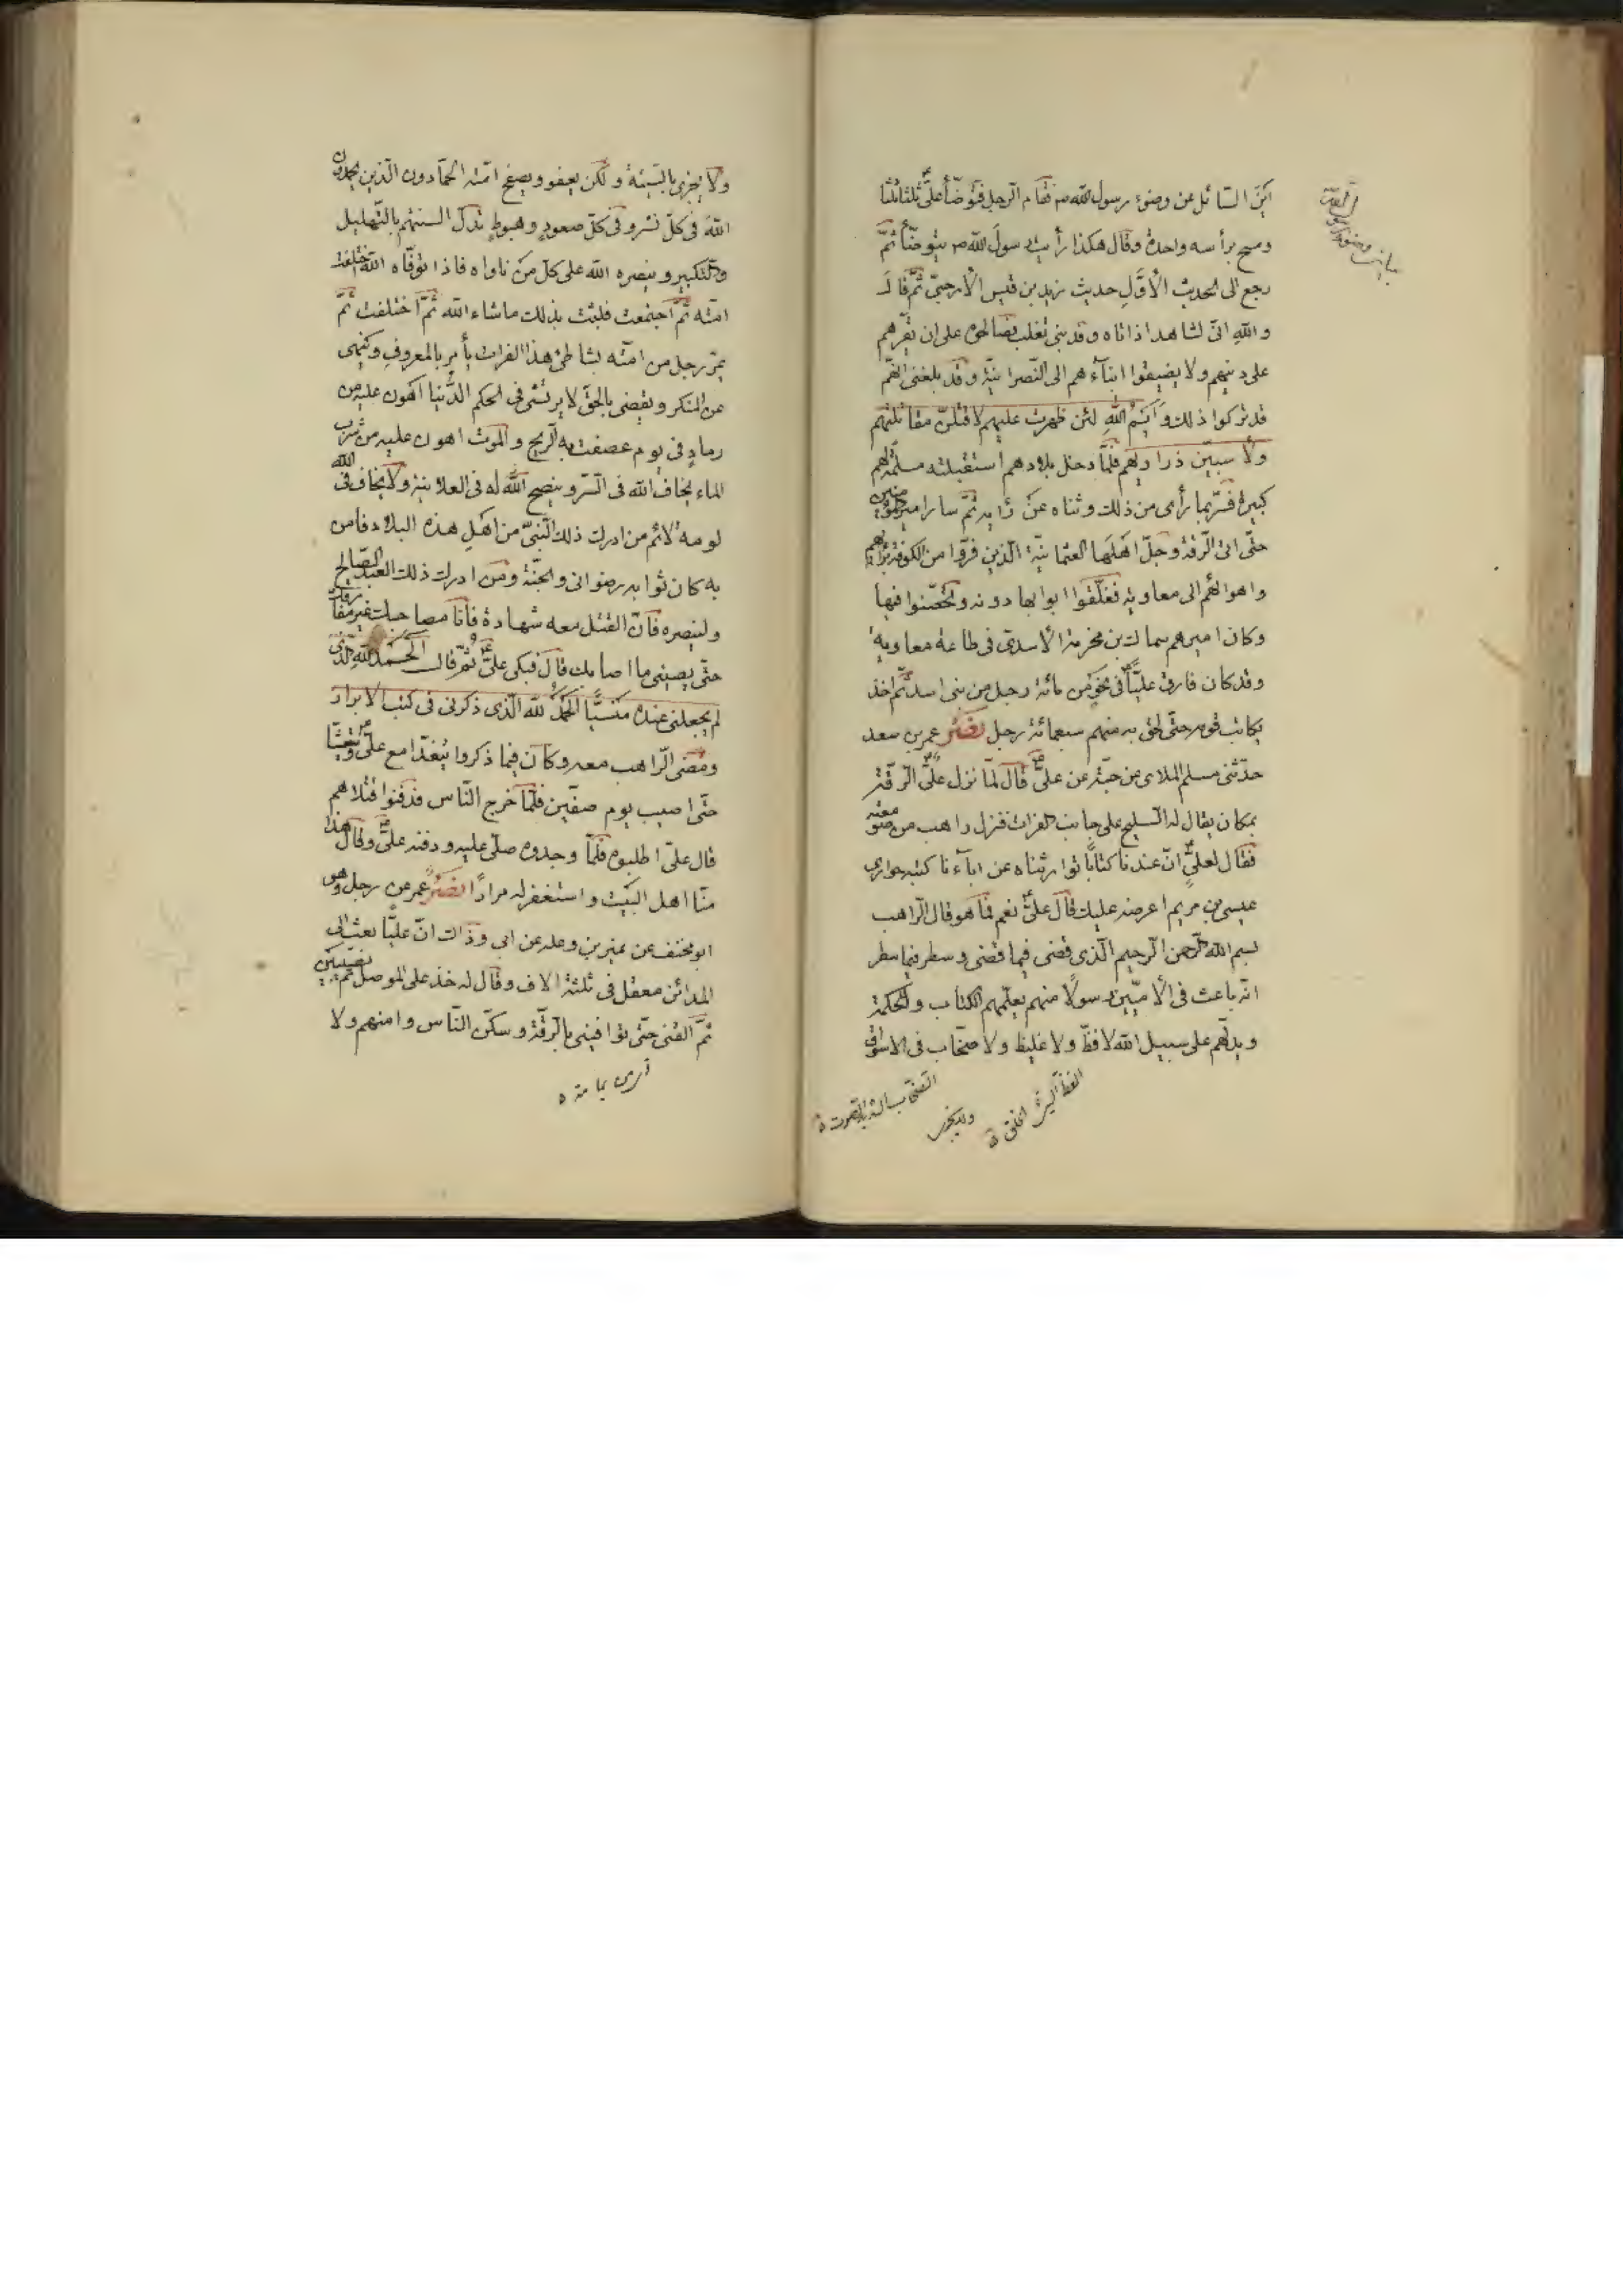 اين السائل عن وضوء رسول الله ص فقام الرجل فتوضأ علىّ ثلثا ثلثا
ومسح برأسه واحدة وقال هكذا رأيت رسول الله ص يتوضأ ثمّ
رجع الى الحديث الأوّل حديث يزيد بن قيس الأرحبىّ ثمّ قال
والله انّى لشاهد اذ اتاه وفد بنى تغلب فصالحوه على ان يقرّهم
على دينهم ولا يضيفوا ابنآءهم الى النّصرانيّة وقد بلغنى انّهم
قد تركوا ذلك وأيم الله لئن ظهرت عليهم لاقتلنّ مقاتلتهم
ولأسبينّ ذراريهم فلمّا دخل بلادهم استقبلته مسلمة لهم
كبيرة فسرّ بما رأى من ذلك وثناه عن رأيه ثمّ سار امير المؤمنين
حتّى اتى الرّقة وجلّ اهلها العثمانيّة الّذين فرّوا من الكوفة برأيهم
واهوائهم الى معاوية فغلّقوا ابوابها دونه وتحصّنوا فيها
وكان اميرهم سماك بن مخرمة الأسدى فى طاعة معاوية
وقد كان فارق عليّا فى نحو من مائة رجل من بنى اسد ثمّ اخذ
يكاتب قومه حتّى لحق به منهم سبعمائة رجل نصر عمر بن سعد
حدّثنى مسلم الملاى عن حبّة عن علىّ قال لمّا نزل علىّ الرّقة
بمكان يقال له البليخ على جانب الفرات فنزل راهب من صومعته
فقال لعلىّ انّ عندنا كتابا توارثناه عن ابآءنا كتبه حوارى
عيسى بن مريم اعرضه عليك قال علىّ نعم فما هو قال الراهب
بسم الله الرّحمن الرّحيم الّذى قضى فيما قضى وسطر فيما سطر
انّه باعث فى الأمّيّين رسولا منهم يعلّمهم الكتاب والحكمة
ويدلّهم على سبيل الله لا فظّ ولا غليظ ولا صخّاب فى الاسواق
ولا يجزى بالسّيئة ولكن يعفو ويصفح امّته الحمّادون الّذين يحمدون
الله فى كلّ نشر وفى كلّ صعود وهبوط تذلّ السنتهم بالتّهليل
والتّكبير وينصره الله على كلّ من ناواه فاذا توفّاه الله اختلفت
امّته ثمّ اجتمعت فلبثت بذلك ماشاء الله ثمّ اختلفت ثمّ
يمرّ رجل من امّته بشاطئ هذا الفرات يأمر بالمعروف وينهى
عن المنكر ويقضى بالحقّ لا يرتشى فى الحكم الدّنيا اهون عليه من
رماد فى يوم عصفت به الرّيح والموت اهون عليه من شرب
الماء يخاف الله فى السّرّ وينصح الله له فى العلانية ولا يخاف فى الله
لومة لائم من ادرك ذلك النّبىّ من اهل هذه البلاد فامن
به كان ثوابه رضوانى والجنّة ومن ادرك ذلك العبد الصّالح
ولينصره فانّ القتل معه شهادة فأنا مصاحبك غير مفارقك
حتّى يصيبنى ما اصابك قال فبكى علىّ ثمّ قال الحمد لله الّذى
لم يجعلنى عنده منسيّا الحمد لله الّذى ذكرنى فى كتب الابرار
ومضى الرّاهب معه وكان فيما ذكروا يتغدّا مع علىّ ويتعشّا
حتّى اصيب يوم صفّين فلمّا خرج النّاس فدفنوا قتلاهم
قال علىّ اطلبوه فلمّا وجدوه صلّى عليه ودفنه علىّ وقال هذا
منّا اهل البيت واستغفر له مرارا نصر عمر عن رجل وهو
ابو مخنف عن نمير بن وعلة عن ابى وذاك انّ عليّا بعث الى
المدائن معقل فى ثلثة الاف وقال له خذ على الموصل ثمّ نصيبين
ثمّ القنى حتّى توافينى بالرّقّة وسكّن النّاس وامنهم ولا